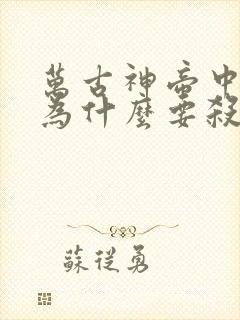 萬古神帝中
為什麼要殺
蘇從勇